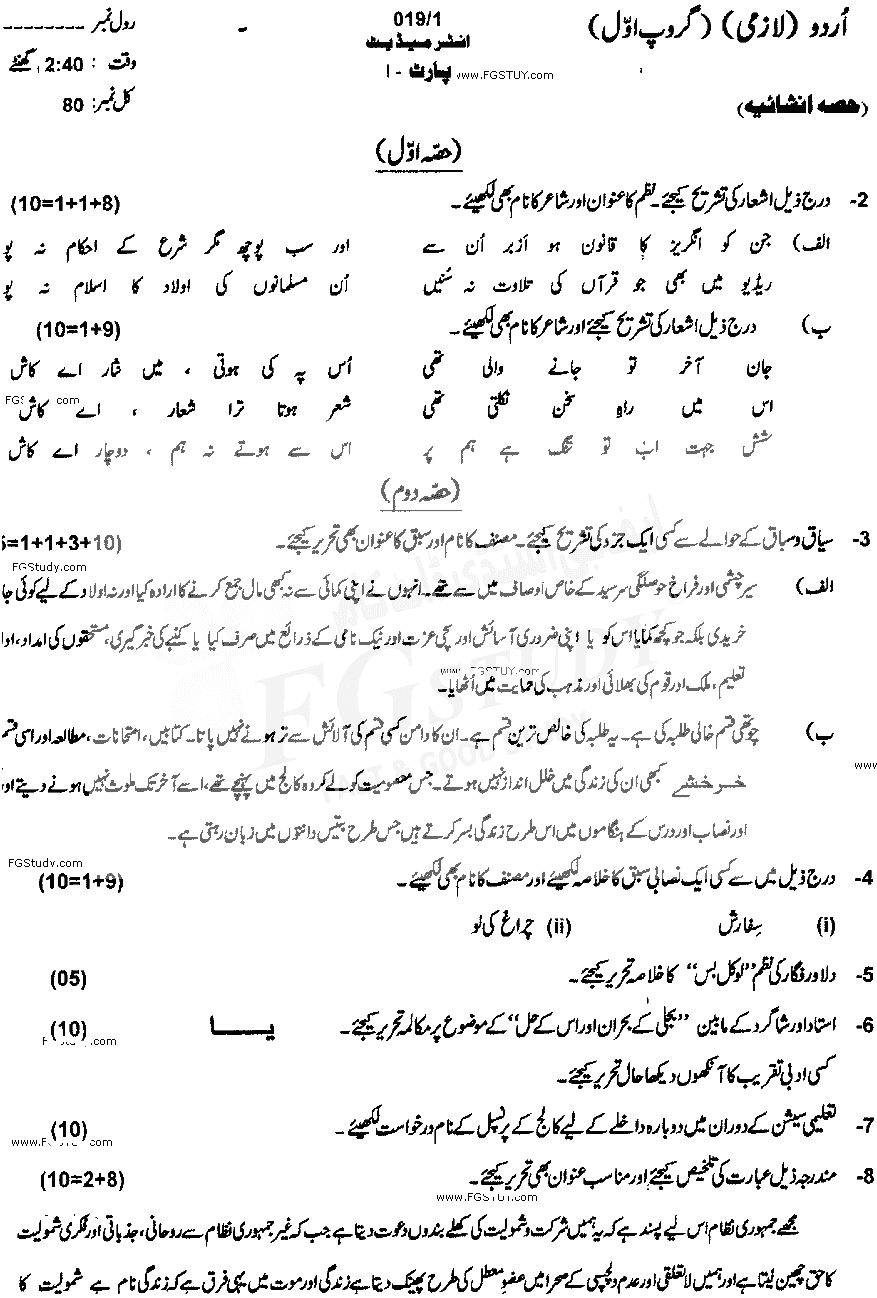 اُردو (لازمی) (گروپ اوّل)
019/1
انٹرمیڈیٹ
پارٹ - I
رول نمبر --------
وقت : 2:40 گھنٹے
کل نمبر: 80
www.FGSTUY.com
(حصہ انشائیہ)
(حصّہ اوّل)
2- درج ذیل اشعار کی تشریح کیجئے۔ نظم کا عنوان اور شاعر کا نام بھی لکھیئے۔ (10=1+1+8)
الف) جن کو انگریز کا قانون ہو ازبر اُن سے اور سب پوچھ مگر شرع کے احکام نہ پو
ریڈیو میں بھی جو قرآں کی تلاوت نہ سُنیں اُن مسلمانوں کی اولاد کا اسلام نہ پو
ب) درج ذیل اشعار کی تشریح کیجئے اور شاعر کا نام بھی لکھیئے۔ (10=1+9)
جان آخر تو جانے والی تھی اُس پہ کی ہوتی ، میں نثار اے کاش
اس میں راہِ سخن نکلتی تھی شعر ہوتا ترا شعار ، اے کاش
شش جہت اب تو تنگ ہے ہم پر اس سے ہوتے نہ ہم ، دوچار اے کاش
(حصّہ دوم)
3- سیاق و سباق کے حوالے سے کسی ایک جزو کی تشریح کیجئے۔ مصنف کا نام اور سبق کا عنوان بھی تحریر کیجئے۔ =1+1+3+10)
FGStudy.com
الف) سیر چشمی اور فراخ حوصلگی سرسید کے خاص اوصاف میں سے تھے۔ انہوں نے اپنی کمائی سے نہ کبھی مال جمع کرنے کا ارادہ کیا اور نہ اولاد کے لیے کوئی جا
خریدی بلکہ جو کچھ کمایا اس کو یا اپنی ضروری آسائش اور سچی عزت اور نیک نامی کے ذرائع میں صرف کیا یا کنبے کی خبر گیری، مستحقوں کی امداد، اولا
تعلیم، ملک اور قوم کی بھلائی اور مذہب کی حمایت میں اُٹھایا۔
www.FGSTUY.com
FGSTUDY
ب) چوتھی قسم خالی طلبہ کی ہے۔ یہ طلبہ کی خالص ترین قسم ہے۔ ان کا دامن کسی قسم کی آلائش سے تر ہونے نہیں پاتا۔ کتابیں، امتحانات، مطالعہ اور اسی قسم
www
خرخشے کبھی ان کی زندگی میں خلل انداز نہیں ہوتے۔ جس معصومیت کو لے کر وہ کالج میں پہنچے تھے، اسے آخر تک ملوث نہیں ہونے دیتے اور
اور نصاب اور درس کے ہنگاموں میں اس طرح زندگی بسر کرتے ہیں جس طرح بتیس دانتوں میں زبان رہتی ہے۔
FGStudy.com
4- درج ذیل میں سے کسی ایک نصابی سبق کا خلاصہ لکھیئے اور مصنف کا نام بھی لکھیئے۔ (10=1+9)
(i) سِفارش (ii) چراغ کی لَو
5- دلاور فگار کی نظم "لوکل بس" کا خلاصہ تحریر کیجئے۔ (05)
6- استاد اور شاگرد کے مابین "بجلی کے بحران اور اس کے حل" کے موضوع پر مکالمہ تحریر کیجئے۔ یا (10)
کسی ادبی تقریب کا آنکھوں دیکھا حال تحریر کیجئے۔
7- تعلیمی سیشن کے دوران میں دوبارہ داخلے کے لیے کالج کے پرنسپل کے نام درخواست لکھیئے۔ (10)
8- مندرجہ ذیل عبارت کی تلخیص کیجئے اور مناسب عنوان بھی تحریر کیجئے۔ (10=2+8)
www.FGSTUY.com
مجھے جمہوری نظام اس لیے پسند ہے کہ یہ ہمیں شرکت و شمولیت کی کھلے بندوں دعوت دیتا ہے جب کہ غیر جمہوری نظام سے روحانی، جذباتی اور فکری شمولیت
کا حق چھین لیتا ہے اور ہمیں لاتعلقی اور عدم دلچسپی کے صحرا میں عضوِ معطل کی طرح پھینک دیتا ہے زندگی اور موت میں یہی فرق ہے کہ زندگی نام ہے شمولیت کا